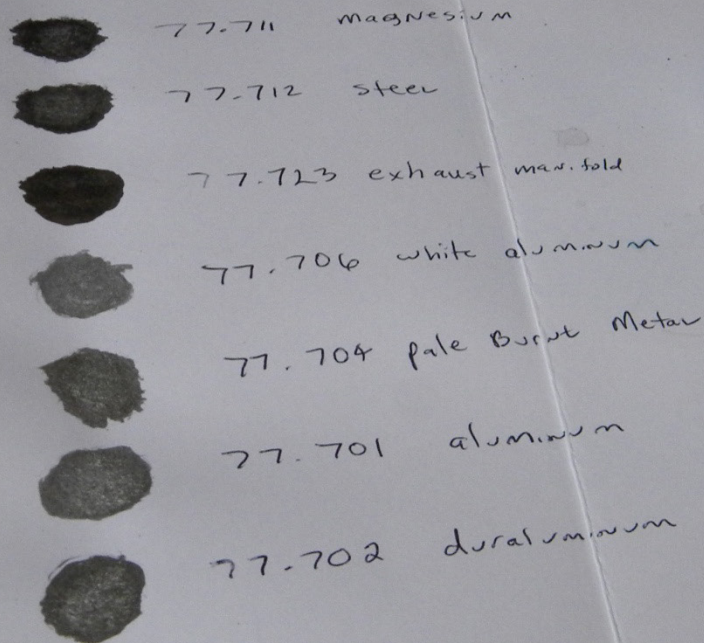 77.711 magnesium
77.712 steel
77.723 exhaust manifold
77.706 white aluminum
77.704 pale Burnt Metal
77.701 aluminum
77.702 duraluminum